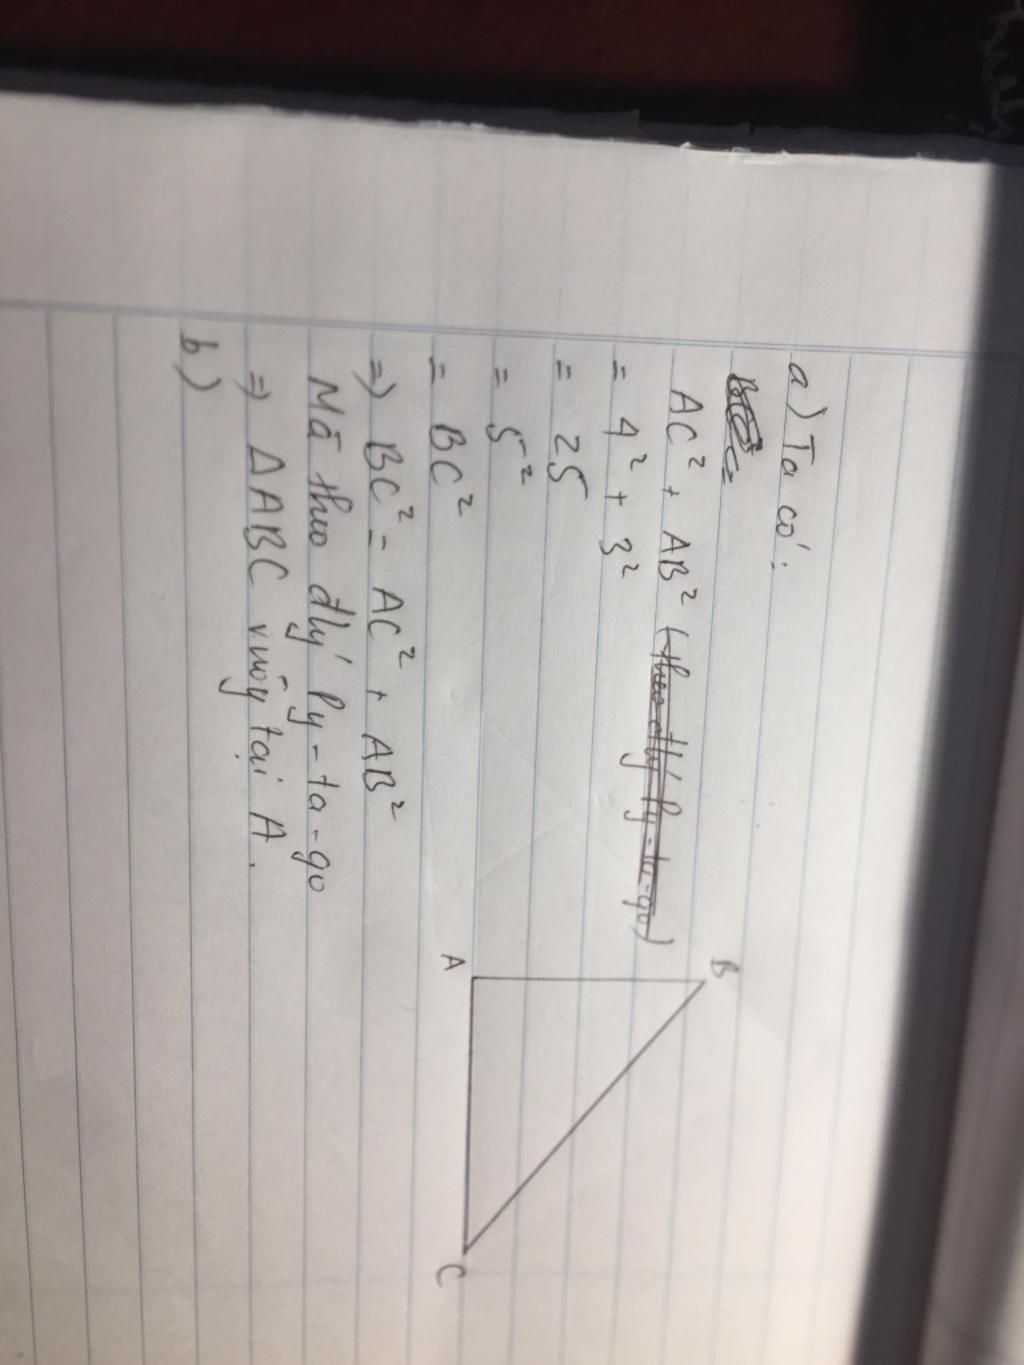 a) Ta có:
AC² + AB² (theo đlý Py-ta-go)
= 4² + 3²
= 25
= 5²
= BC²
=> BC² = AC² + AB²
Mà theo đlý Py-ta-go
=> ΔABC vuông tại A.
b)
B
A
C